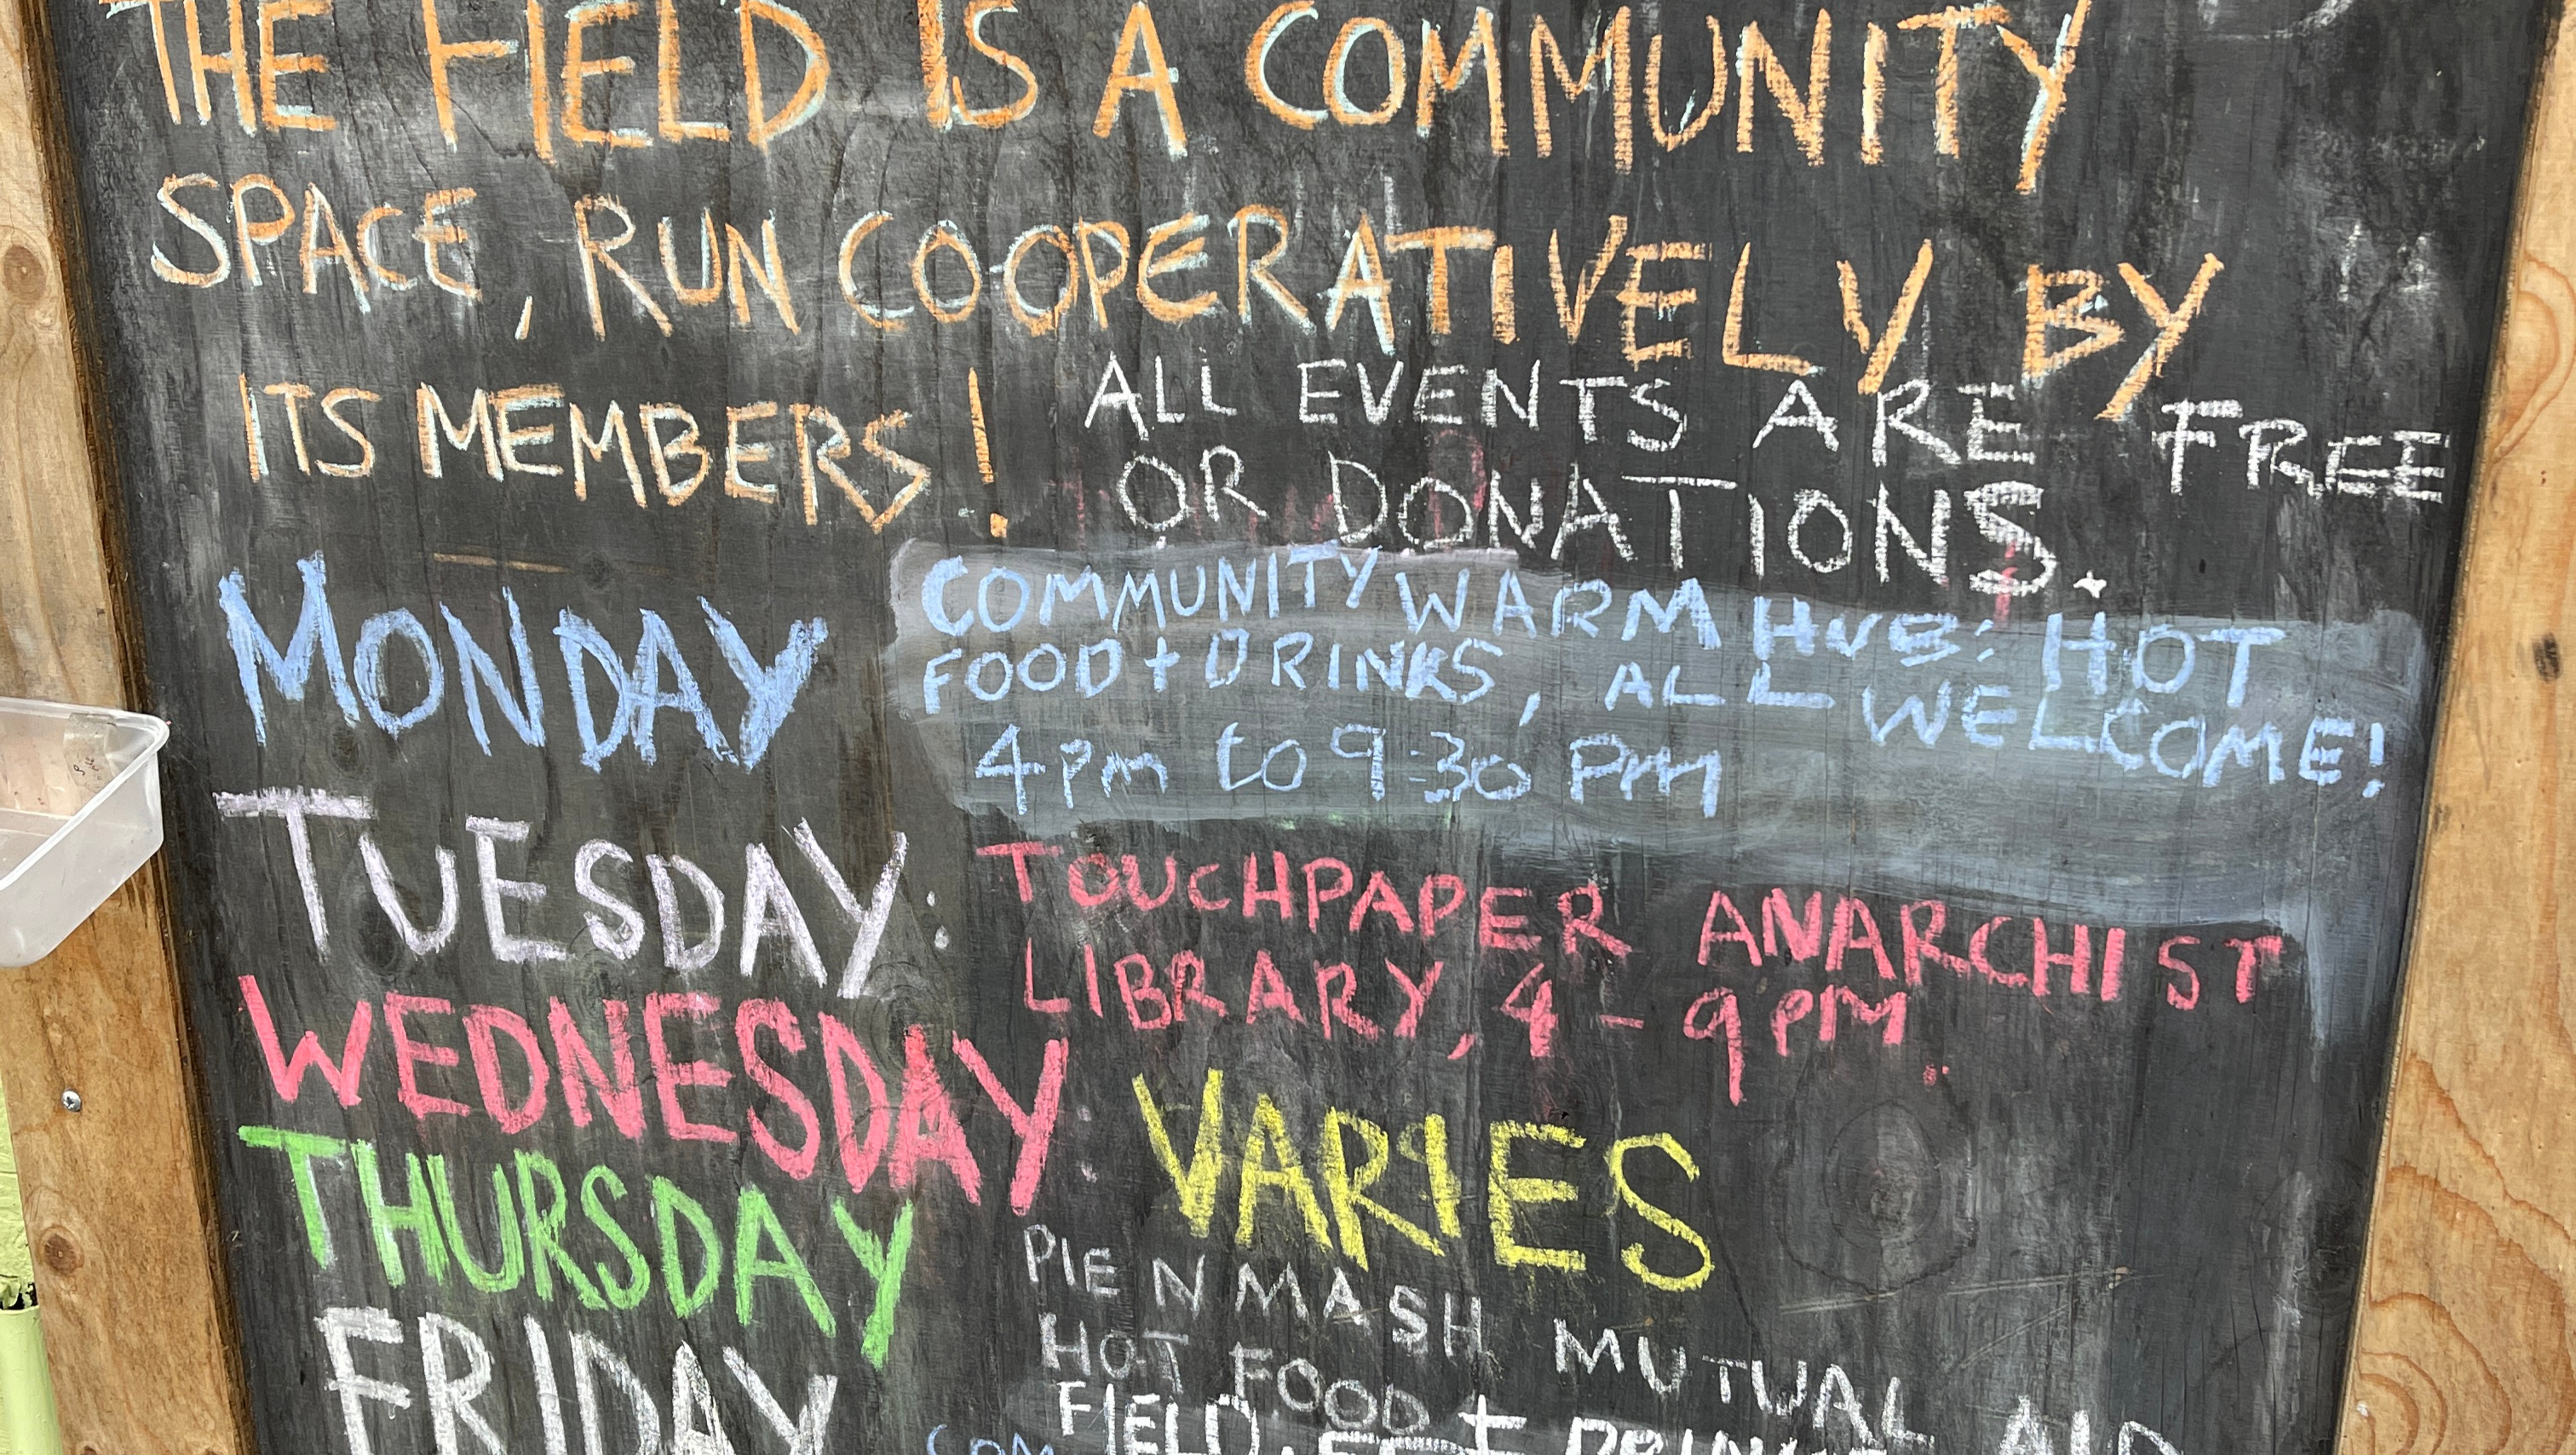 THE FIELD IS A COMMUNITY
SPACE, RUN CO-OPERATIVELY BY
ITS MEMBERS!
ALL EVENTS ARE FREE
OR DONATIONS.
MONDAY
COMMUNITY WARM HUB: HOT
FOOD + DRINKS, ALL WELCOME!
4pm to 9:30 PM
TUESDAY:
TOUCHPAPER ANARCHIST
LIBRARY, 4-9PM.
WEDNESDAY:
VARIES
THURSDAY
PIE N MASH MUTUAL AID
HOT FOOD +
FRIDAY
FIELD